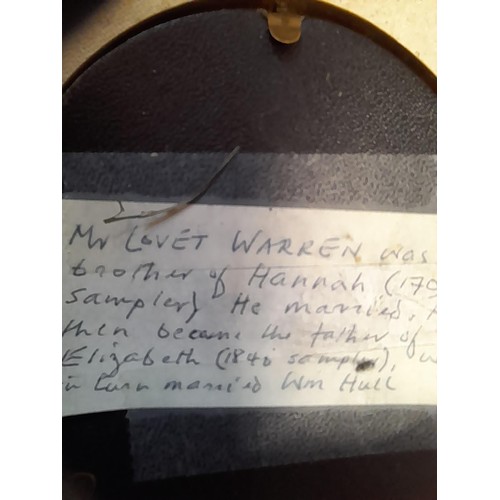 Mr LOVET WARREN was
brother of Hannah (179
sampler) He married,
then became the father of
Elizabeth (1840 sampler),
in turn married Wm Hull